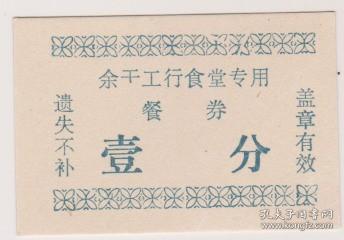 余干工行食堂专用
餐 券
壹 分
遗失不补
盖章有效
孔夫子旧书网